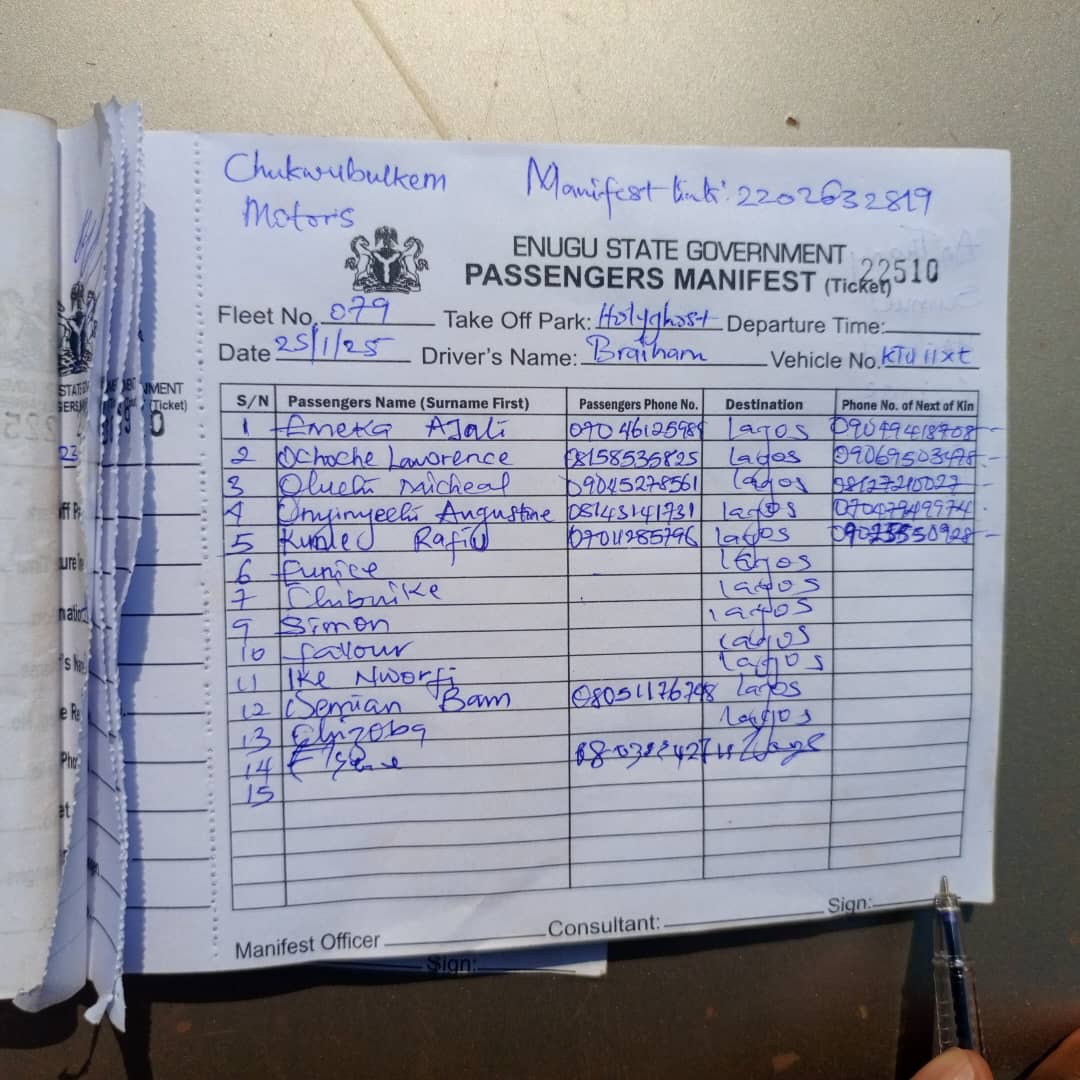 Chukwubulkem Manifest link: 2202632819
Motors
ENUGU STATE GOVERNMENT
PASSENGERS MANIFEST (Ticket) 22510
Fleet No. 079 Take Off Park: Holyghost Departure Time:
Date 25/1/25 Driver's Name: Braiham Vehicle No. KTU 11xt
S/N Passengers Name (Surname First) Passengers Phone No. Destination Phone No. of Next of Kin
1 Emeka Ajali Lagos 09049418908
2 Ochoche Lawrence 08158535825 Lagos 09069503478
3 Oluchi Micheal 09045278561 Lagos 08127210027
4 Onyinyechi Angustine 08143141731 Lagos 07047949974
5 Rafiu 07011285796 Lagos
6 Eunice Lagos
7 Chibuike Lagos
9 Simon Lagos
10 favour Lagos
11 Ike Nworji Lagos
12 Bam 08051176748 Lagos
13 Lagos
14
15
Manifest Officer Consultant: Sign:
Sign:
STATE
MENT
(Ticket)
0
23